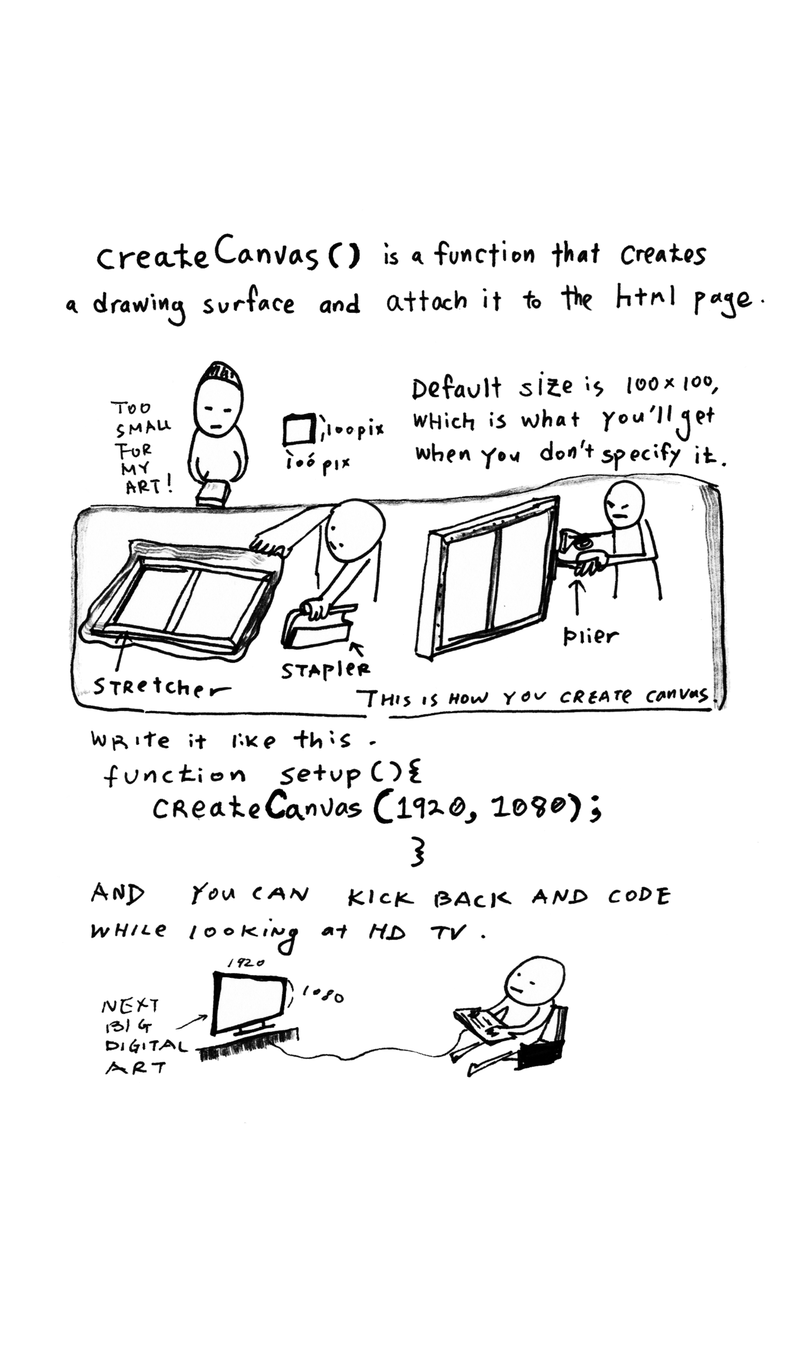 createCanvas() is a function that creates
a drawing surface and attach it to the html page.
TOO
SMALL
FOR
MY
ART!
100pix
100 pix
Default size is 100×100,
which is what you'll get
when you don't specify it.
STRetcher
STAPleR
plier
THIS IS HOW YOU CREATE canvas.
WRite it like this.
function setup(){
CReateCanvas(1920, 1080);
}
AND YOU CAN KICK BACK AND CODE
WHILe looking at HD TV.
1920
1080
NEXT
BIG
DIGITAL
ART